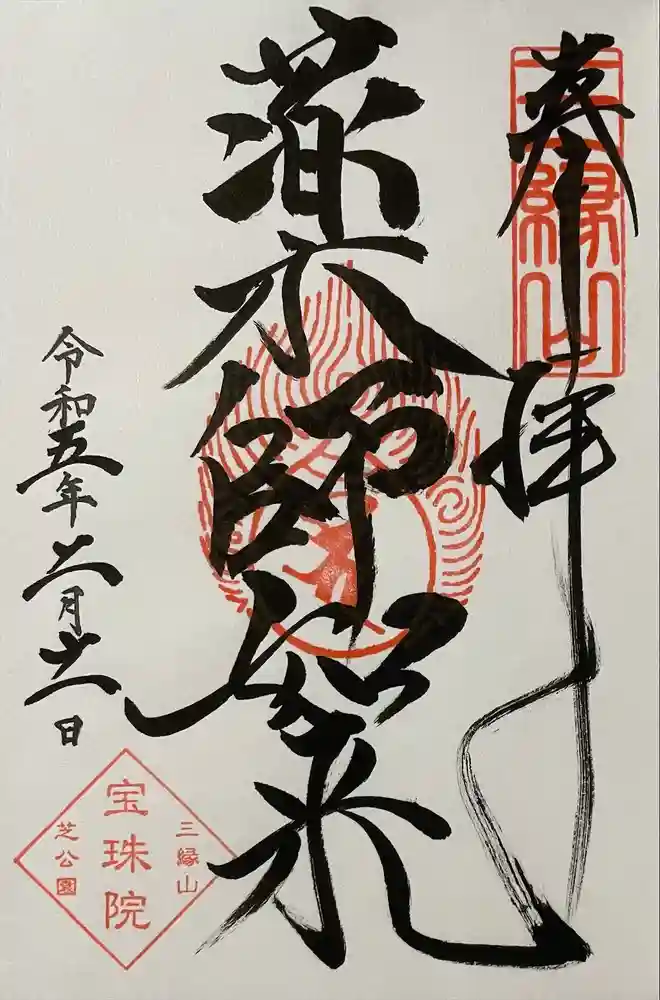 奉拝
三縁山
薬師如来
令和五年十二月 日
三縁山
宝珠院
芝公園